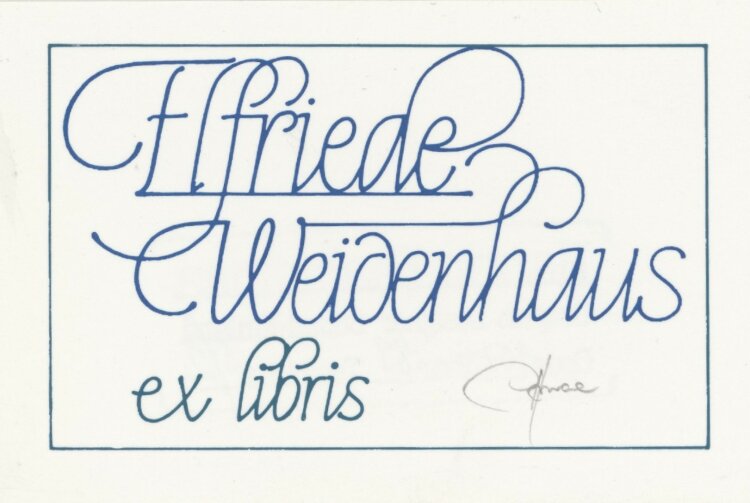 Elfriede
Weidenhaus
ex libris